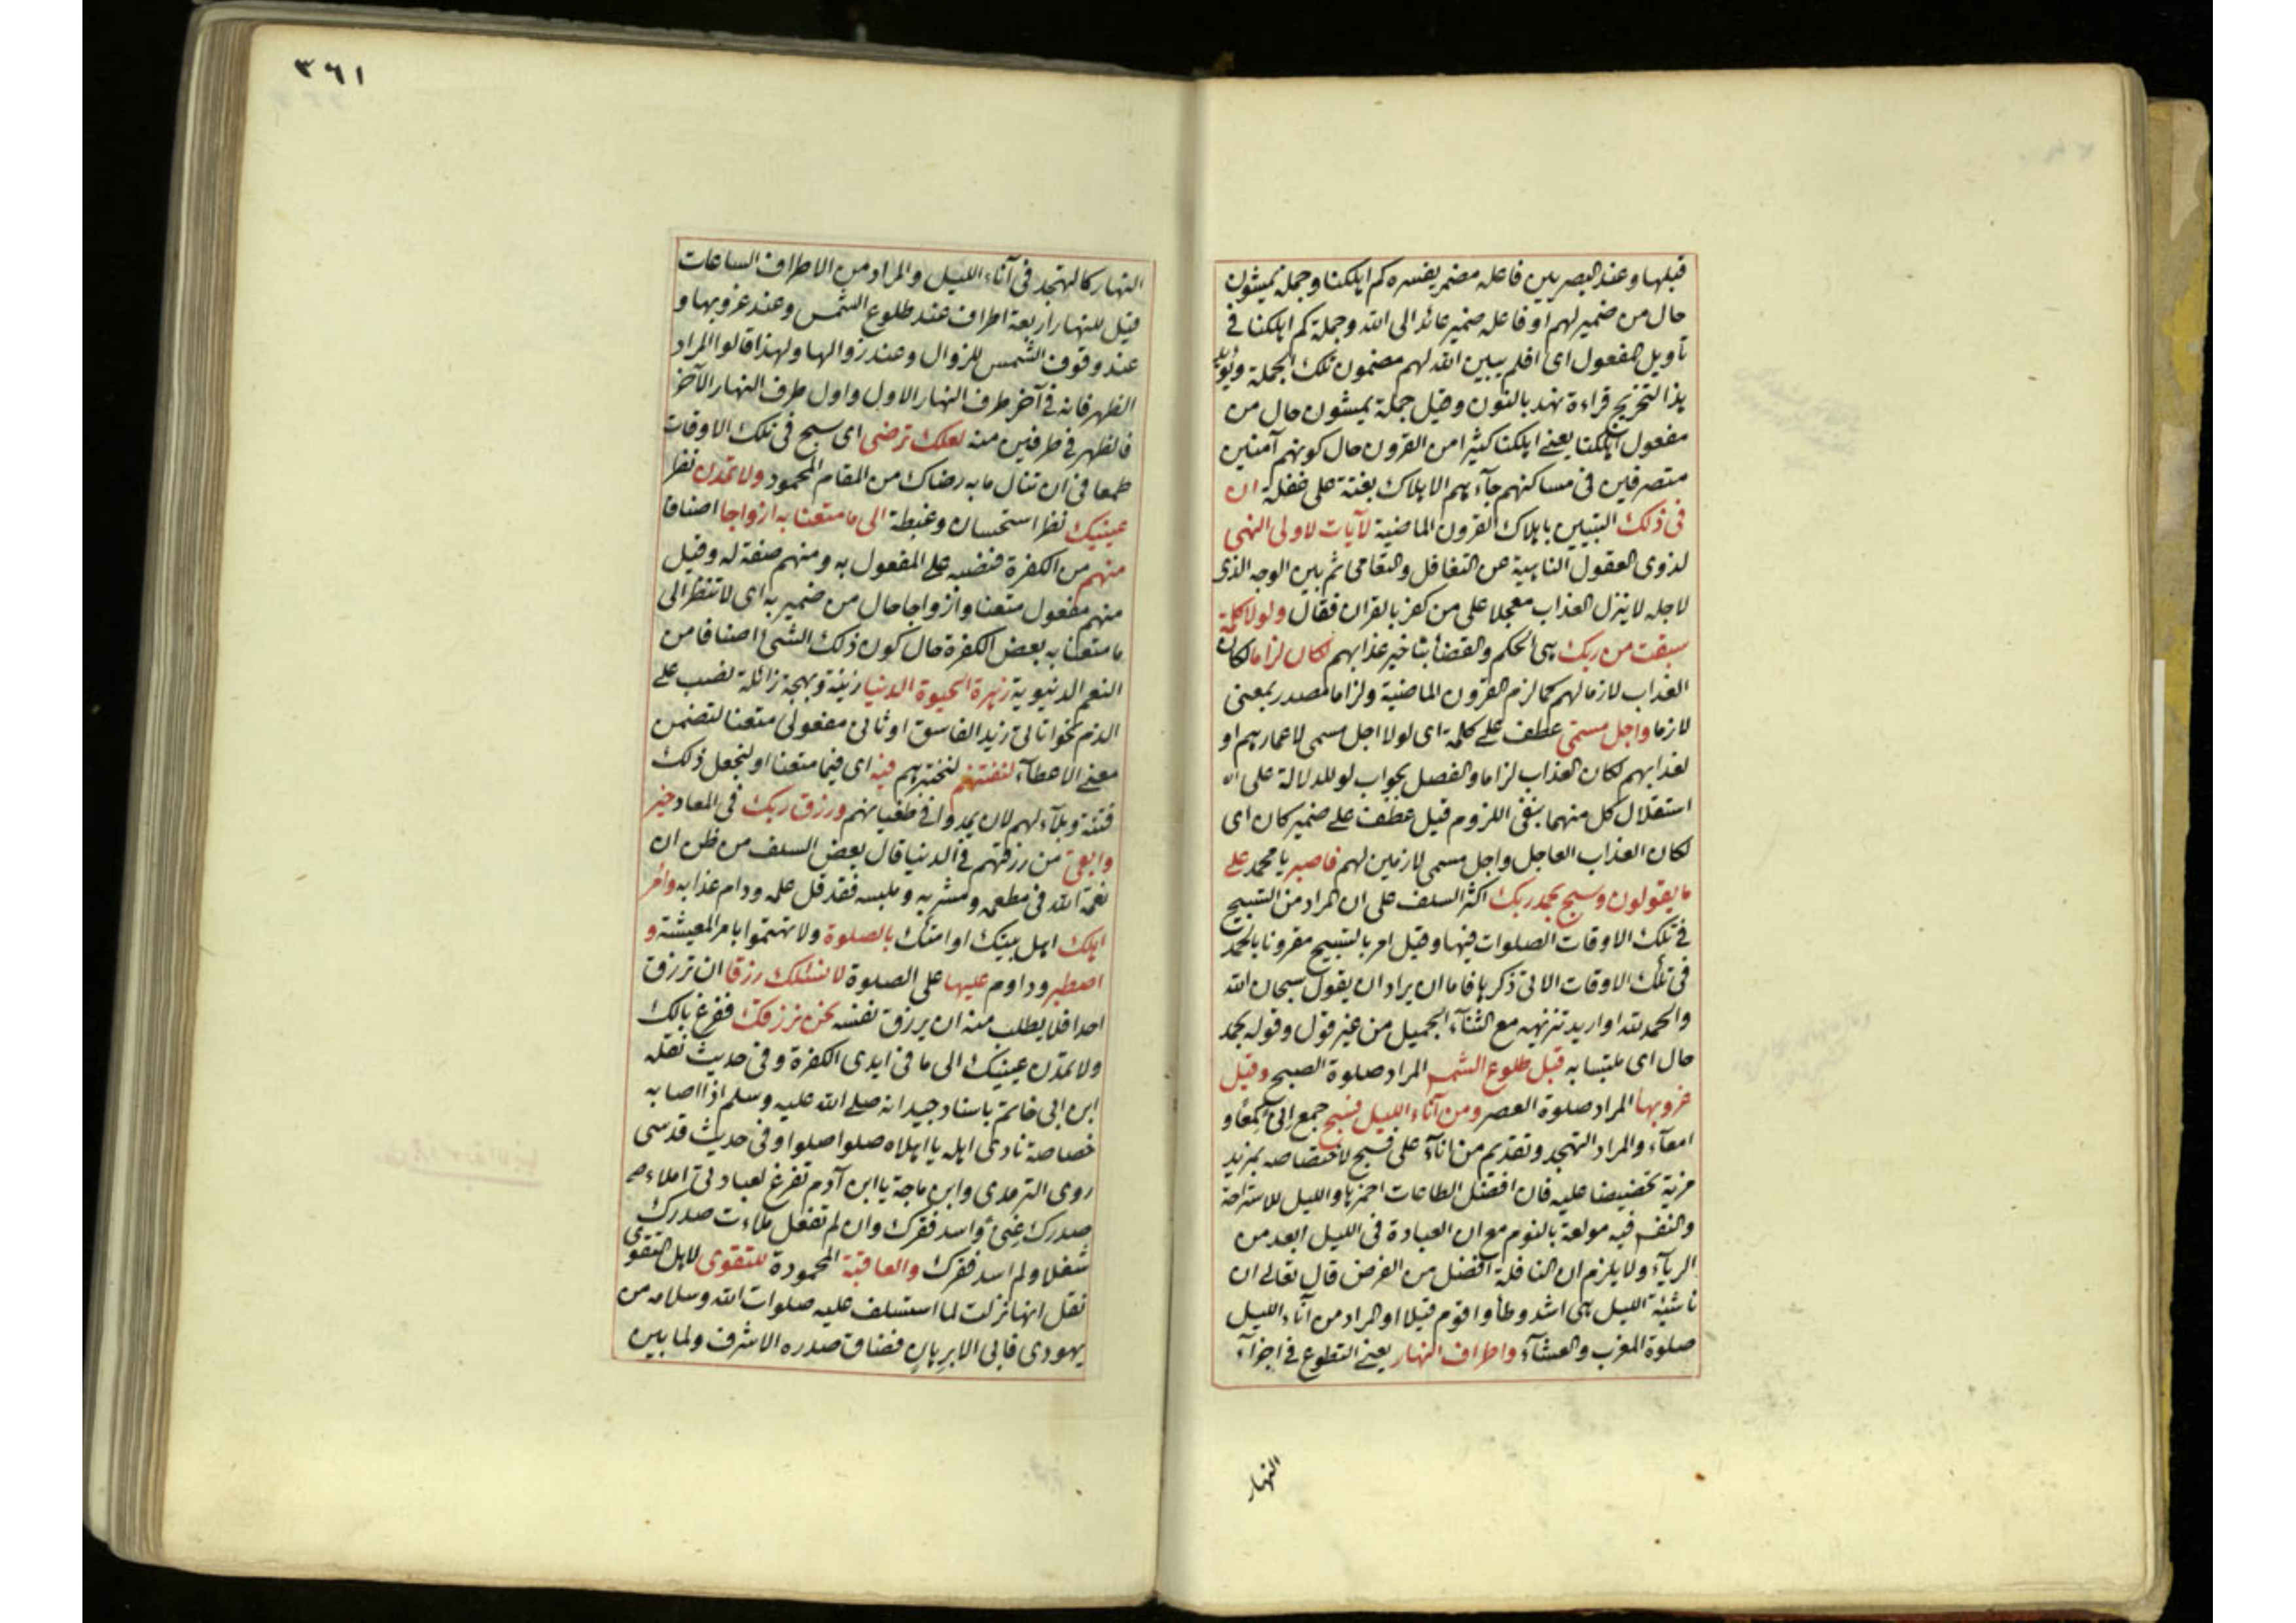 قبلها وعند البصريين فاعله مضمر يفسره كم اهلكنا وجملة يمشون
حال من ضمير لهم او فاعله ضمير عائد الى الله وجملة كم اهلكنا في
تأويل المفعول اى افلم يبين الله لهم مضمون تلك الجملة ويؤيد
هذا التخريج قراءة نهد بالنون وقيل جملة يمشون حال من
مفعول اهلكنا يعنى اهلكنا كثيرا من القرون حال كونهم آمنين
متصرفين فى مساكنهم جآءهم الاهلاك بغتة على غفلة ان
فى ذلك التبيين باهلاك القرون الماضية لآيات لاولى النهى
لذوى العقول الناهية عن التغافل والتعامى ثم بين الوجه الذى
لاجله لا ينزل العذاب معجلا على من كفر بالقران فقال ولولا كلمة
سبقت من ربك هى الحكم والقضأ بتاخير عذابهم لكان لزاما لكان
العذاب لازما لهم كما لزم القرون الماضية ولزاما مصدر بمعنى
لازما واجل مسمى عطف على كلمة اى لولا اجل مسمى لاعمارهم او
لعذابهم لكان العذاب لزاما والفصل بجواب لو للدلالة على ان
استقلال كل منهما بنفى اللزوم قيل عطف على ضمير كان اى
لكان العذاب العاجل واجل مسمى لازمين لهم فاصبر يا محمد على
ما يقولون وسبح بحمد ربك اكثر السلف على ان المراد من التسبيح
فى تلك الاوقات الصلوات فيها وقيل امر بالتسبيح مقرونا بالحمد
فى تلك الاوقات الاتى ذكرها فاما ان يراد ان يقول سبحان الله
والحمد لله او اريد تنزيهه مع الثنآء الجميل من غير قول وقوله بحمد
حال اى ملتبسا به قبل طلوع الشمس المراد صلوة الصبح وقبل
غروبها المراد صلوة العصر ومن آناء الليل فسبح جمع إنى كمعأ و
امعآء والمراد التهجد وتقديم من انآء على فسبح لاختصاصه بمزيد
مزية تخصيصا عليه فان افضل الطاعات احمزها والليل للاستراحة
والنفس فيه مولعة بالنوم مع ان العبادة فى الليل ابعد من
الريآء ولا يلزم ان النافلة افضل من الفرض قال تعالى ان
ناشئة الليل هى اشد وطأ واقوم قيلا او المراد من آناء الليل
صلوة المغرب والعشآء واطراف النهار يعنى التطوع فى اجزآء
النهار
٣٦١
النهار كالتهجد فى آناء الليل والمراد من الاطراف الساعات
قيل للنهار اربعة اطراف عند طلوع الشمس وعند غروبها و
عند وقوف الشمس للزوال وعند زوالها ولهذا قالوا المراد
الظهر فانه فى آخر طرف النهار الاول واول طرف النهار الآخر
فالظهر فى طرفين منه لعلك ترضى اى سبح فى تلك الاوقات
طمعا فى ان تنال ما به رضاك من المقام المحمود ولا تمدن نظر
عينيك نظر استحسان وغبطة الى ما متعنا به ازواجا اصنافا
منهم من الكفرة فنصبه على المفعول به ومنهم صفة له وقيل
منهم مفعول متعنا وازواجا حال من ضمير به اى لا تنظر الى
ما متعنا به بعض الكفرة حال كون ذلك الشئ اصنافا من
النعم الدنيوية زهرة الحيوة الدنيا زينة وبهجة زائلة نصب على
الذم نحو اتانى زيد الفاسق او ثانى مفعولى متعنا لتضمن
معنى الاعطآء لنفتنهم لنختبرهم فيه اى فيما متعنا او لنجعل ذلك
فتنة وبلآء لهم لان يمدوا فى طغيانهم ورزق ربك فى المعاد خير
وابقى من رزقهم فى الدنيا قال بعض السلف من ظن ان
نعمة الله فى مطعمه ومشربه وملبسه فقد قل علمه ودام عذابه وأمر
اهلك اهل بيتك او امتك بالصلوة ولا تهتموا بامر المعيشة و
اصطبر وداوم عليها على الصلوة لا نسئلك رزقا ان ترزق
احدا فلا يطلب منه ان يرزق نفسه نحن نرزقك ففرغ بالك
ولا تمدن عينيك الى ما فى ايدى الكفرة وفى حديث نقله
ابن ابى خاتم باسناد جيد انه صلى الله عليه وسلم اذا اصابه
خصاصة نادى اهله يا اهلاه صلوا صلوا وفى حديث قدسى
روى الترمدى وابن ماجة يا ابن آدم تفرغ لعبادتى املاء
صدرك غنى وأسد فقرك وان لم تفعل ملاءت صدرك
شغلا ولم اسد فقرك والعاقبة المحمودة للتقوى لاهل التقوى
نقل انها نزلت لما استسلف عليه صلوات الله وسلامه من
يهودى فابى الا برهان فضاق صدره الاشرف ولما بين